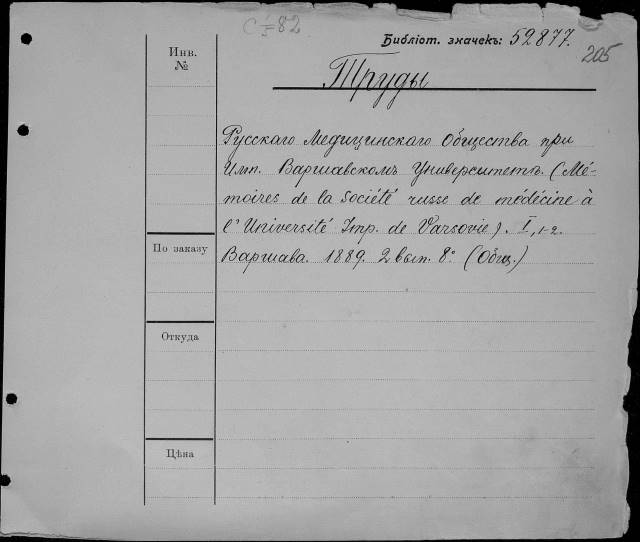 С I-82
Библіот. значекъ: 52877.
205
Инв.
№
Труды
Русскаго Медицинскаго Общества при
Имп. Варшавскомъ Университетѣ. (Mé-
moires de la Société russe de médécine à
l'Université Imp. de Varsovie). I, 1-2.
Варшава. 1889. 2 вып. 8º (Общ.)
По заказу
Откуда
Цѣна